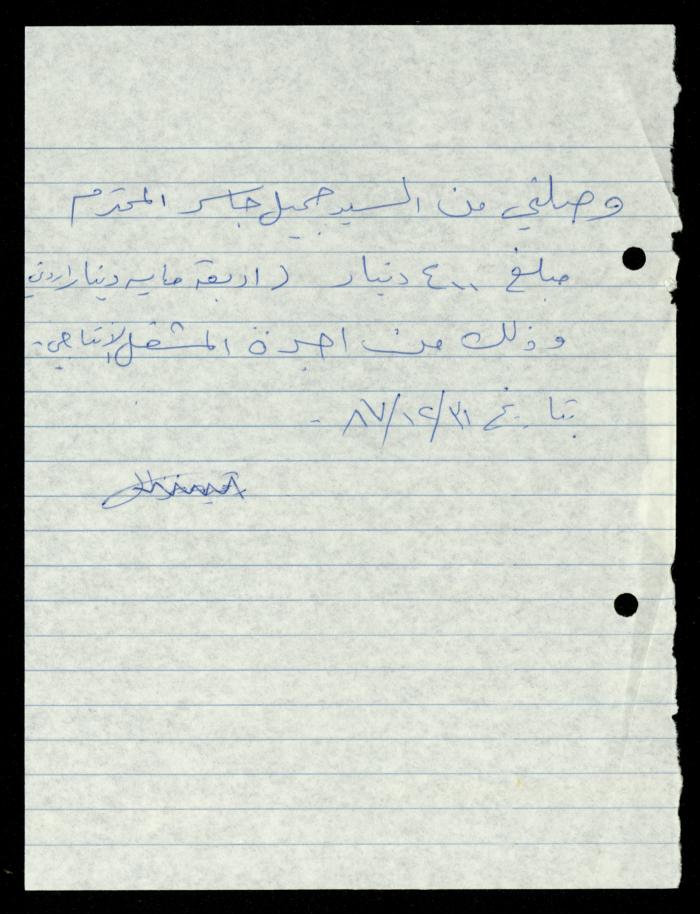 وصلني من السيد جميل جاسر المحترم
مبلغ ٤٠٠ دينار (اربعة ماية دينار اردني
وذلك من اجرة المشغل الانتاجي.
بتاريخ ٨٧/١٢/٣١ -